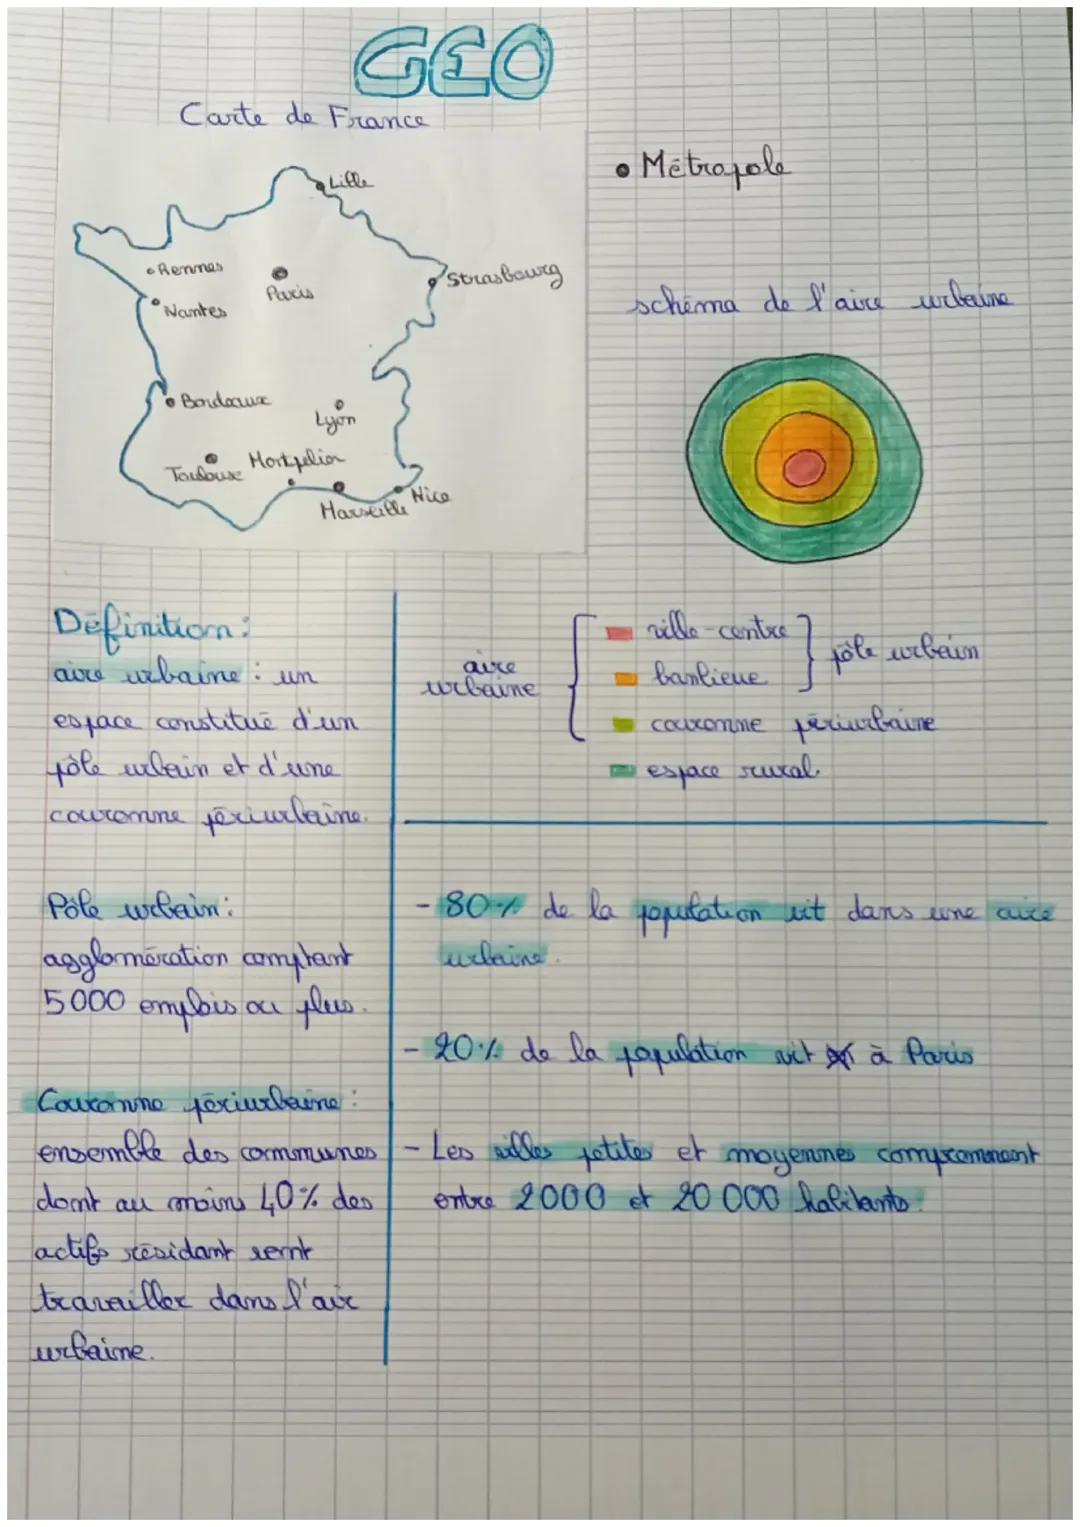 GEO
Carte de France
Lille
Rennes
Paris
Strasbourg
Nantes
Bordeaux
Lyon
Toulouse
Montpelier
Nice
Marseille
• Métropole
schéma de l'aire urbaine
Définition :
aire urbaine : un
espace constitué d'un
pôle urbain et d'une
couronne périurbaine.
Pôle urbain :
agglomération comptant
5000 emplois ou plus.
Couronne périurbaine :
ensemble des communes
dont au moins 40% des
actifs résidant
travailler dans l'air
urbaine.
aire
urbaine
ville-centre
banlieue
pôle urbain
couronne périurbaine
espace rural
- 80% de la population vit dans une aire
urbaine.
- 20% de la population vit à Paris
- Les villes petites et moyennes comprennent
entre 2000 et 20 000 habitants.